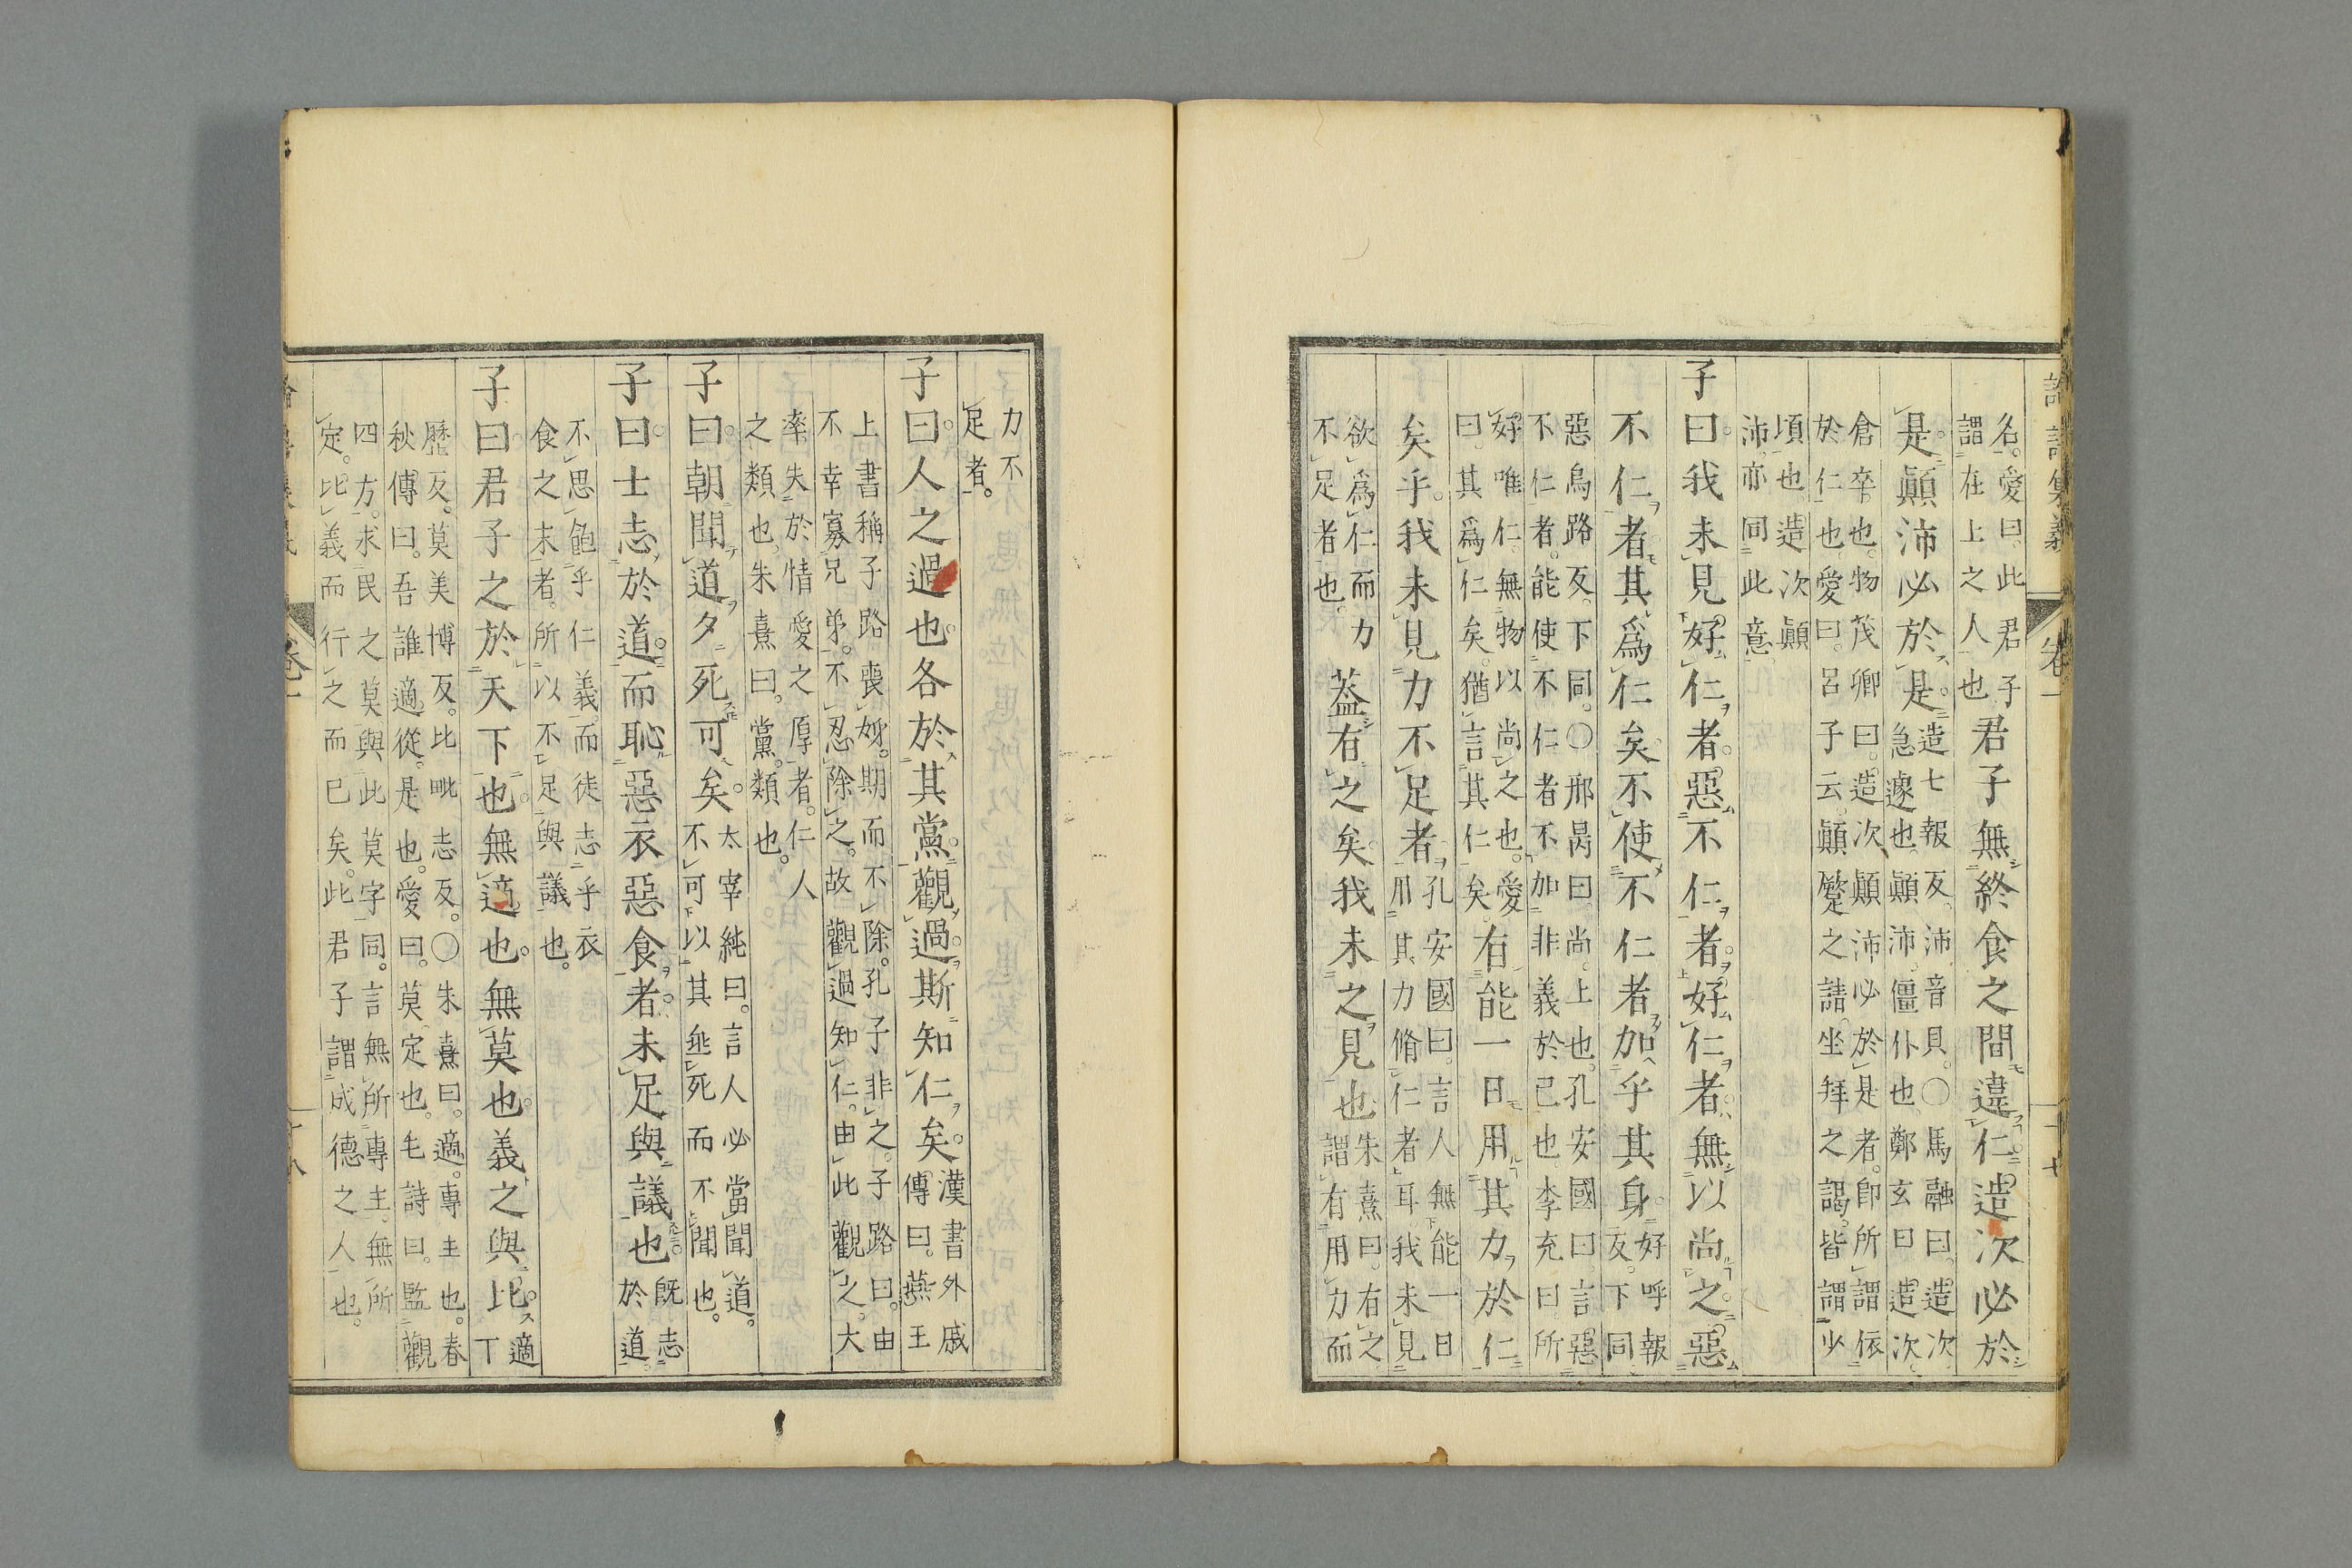 論語集義 卷一 十七
名。愛曰。此君子
謂在上之人也
君子無終食之間違仁。造次必於
是。顚沛必於是。
造七報反。沛音貝。○馬融曰。造次
急遽也。顚沛。僵仆也。鄭玄曰。造次。
倉卒也。物茂卿曰。造次顚沛必於是者。卽所謂依
於仁也。愛曰。呂子云。顚蹷之請。坐拜之謁。皆謂少
頃也。造次顚
沛。亦同此意。
子曰。我未見好仁者。惡不仁者。好仁者。無以尚之。惡
不仁者。其爲仁矣。不使不仁者加乎其身。
好呼報
反。下同
惡烏路反。下同。○邢昺曰。尚。上也。孔安國曰。言惡
不仁者。能使不仁者不加非義於己也。李充曰。所
好唯仁。無物以尚之也。愛
曰。其爲仁矣。猶言其仁矣。
有能一日用其力於仁
矣乎。我未見力不足者。
孔安國曰。言人無能一日
用其力脩仁者耳。我未見
欲爲仁而力
不足者也。
蓋有之矣。我未之見也。
朱熹曰。有之
謂有用力而
力不
足者。
子曰。人之過也。各於其黨。觀過斯知仁矣。
漢書外戚
傳曰。燕王
上書稱子路喪姊。期而不除。孔子非之。子路曰。由
不幸寡兄弟。不忍除之。故觀過知仁。由此觀之。大
率失於情愛之厚者。仁人
之類也。朱熹曰。黨。類也。
子曰。朝聞道夕死可矣。
太宰純曰。言人必當聞道。
不可以其垂死而不聞也。
子曰。士志於道。而恥惡衣惡食者。未足與議也。
旣志
於道
不思飽乎仁義。而徒志乎衣
食之末者。所以不足與議也。
子曰。君子之於天下也。無適也。無莫也。義之與比。
適
丁
歷反。莫美博反。比毗志反。○朱熹曰。適。專主也。春
秋傳曰。吾誰適從。是也。愛曰。莫。定也。毛詩曰。監觀
四方。求民之莫。與此莫字同。言無所專主。無所
定。比義而行之而已矣。此君子謂成德之人也。
卷一